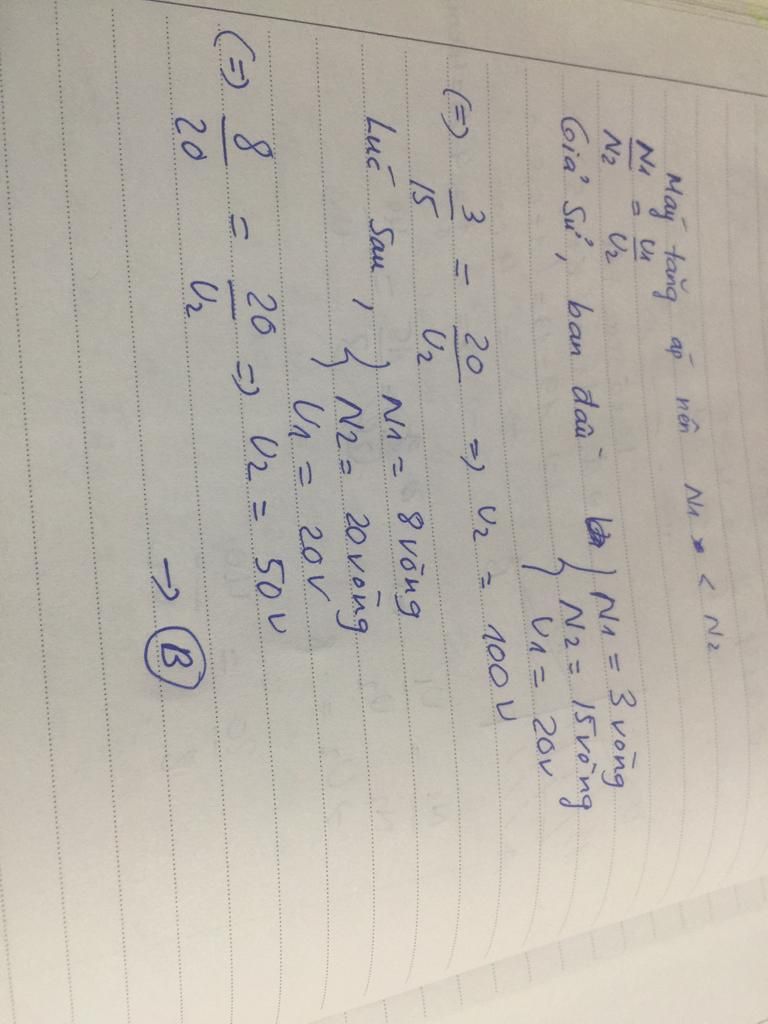 Máy tăng áp nên N1 < N2
N1/N2 = U1/U2
Giả sử, ban đầu } N1 = 3 vòng
N2 = 15 vòng
U1 = 20V
(=) 3/15 = 20/U2 => U2 = 100V
Lúc sau, } N1 = 8 vòng
N2 = 20 vòng
U1 = 20V
(=) 8/20 = 20/U2 => U2 = 50V
→ B